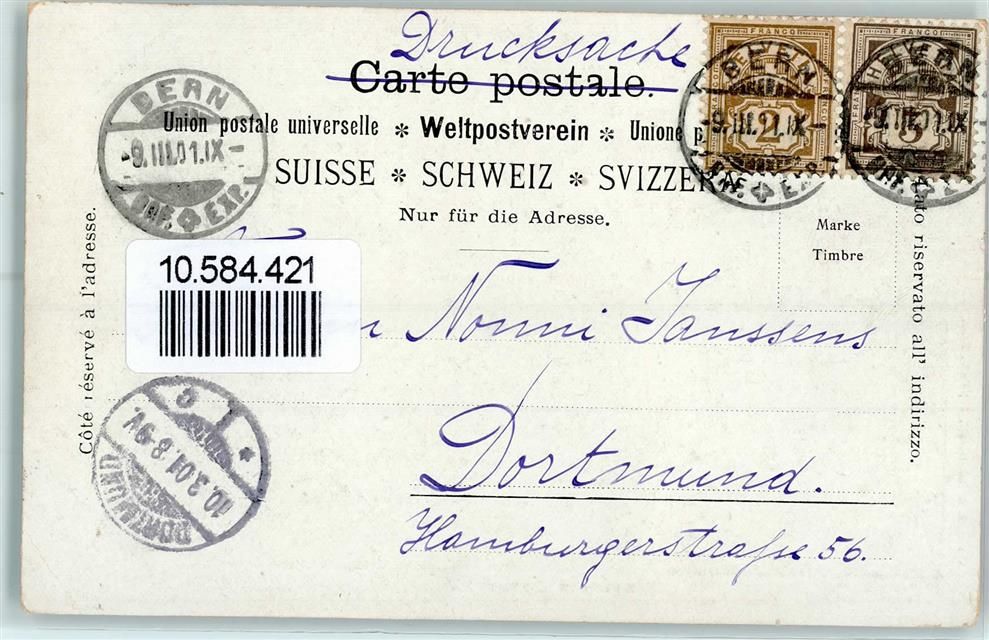 Drucksache
Carte postale.
Union postale universelle * Weltpostverein * Unione p
SUISSE * SCHWEIZ * SVIZZERA
Nur für die Adresse.
BERN
-9.III.01.IX-
BRF. EXP.
FRANCO
2
FRANCO
3
BERN
-9.III.01.IX-
BRF. EXP.
BERN
-9.III.01.IX
BRF. EXP.
Marke
Timbre
Côté réservé à l'adresse.
Lato riservato all' indirizzo.
10.584.421
n Nonni Janssens
Dortmund.
Hamburgerstraße 56.
DORTMUND
10.3.01.8-9V.
* 1 c